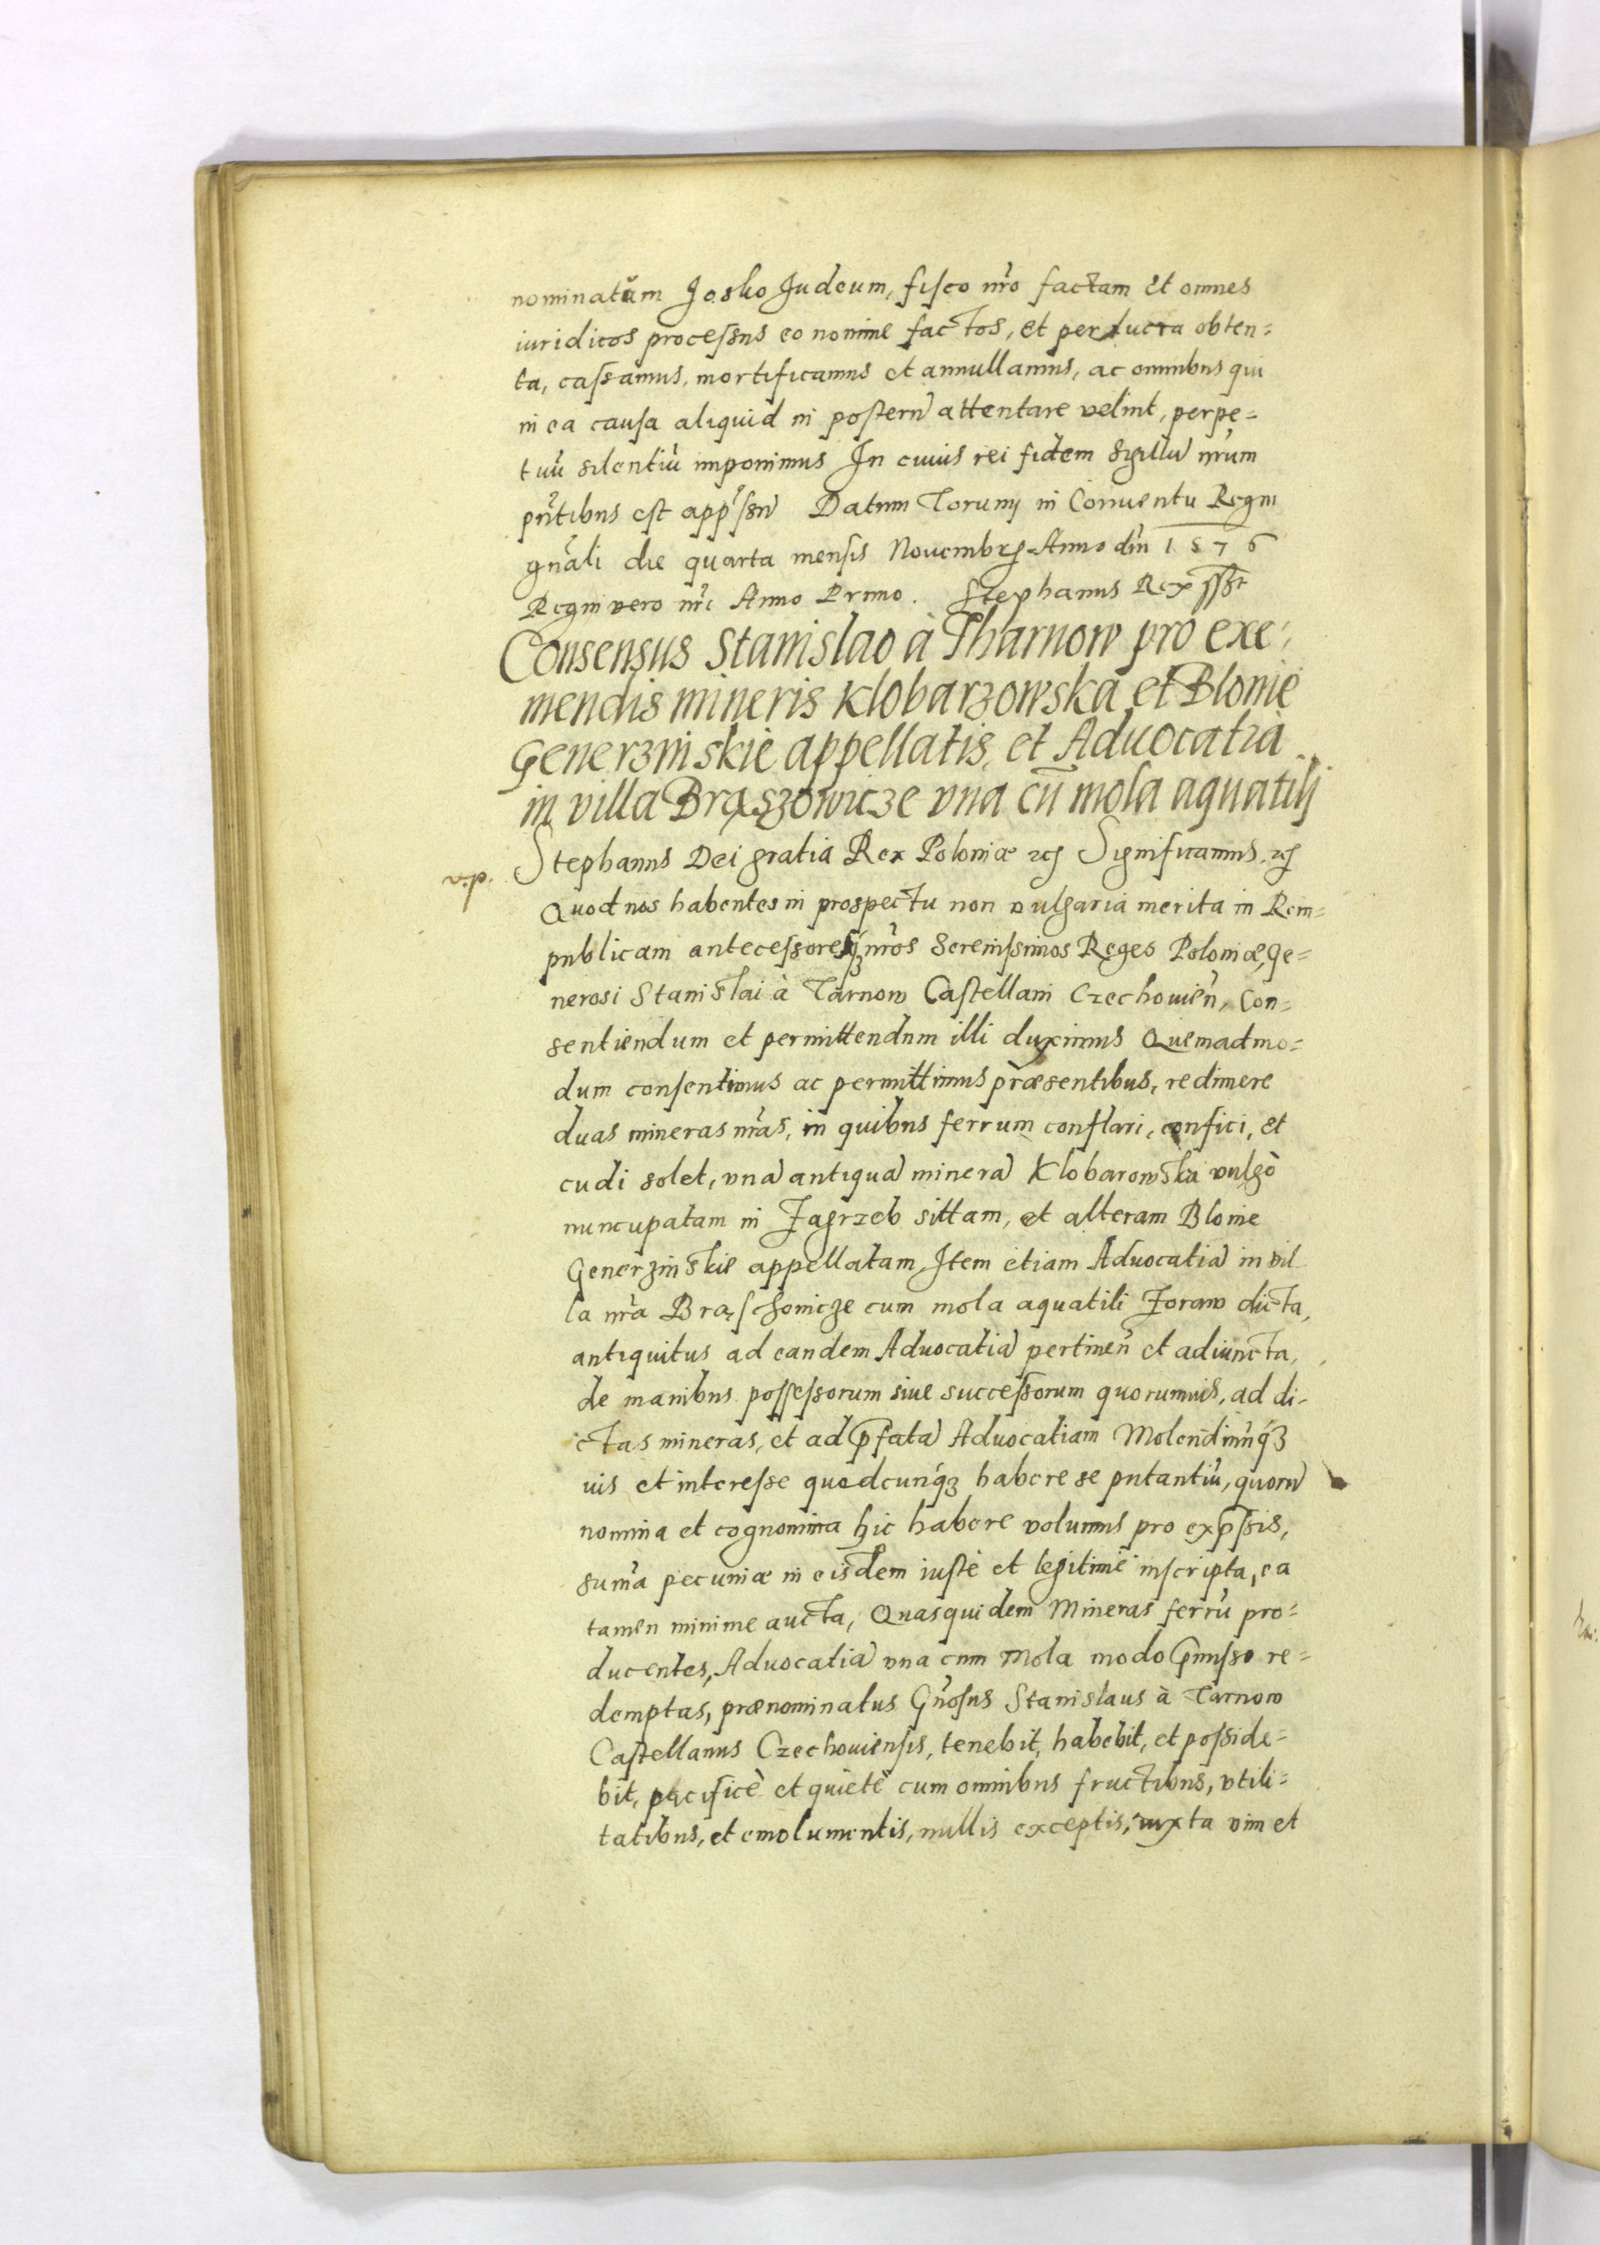 nominatum Josko Judeum, fisco nr̃o factam et omnes
iuridicos processus eo nomine factos, et per lucra obten=
ta, cassamus, mortificamus et annullamus, ac omnibus qui
in ea causa aliquid in posterũ attentare velint, perpe=
tuũ silentiũ imponimus In cuius rei fidem sigillũ nr̃um
pñtibus est app̃ssũ Datum Torunij in Conuentu Regni
gñali die quarta mensis Nouembrꝭ Anno dñi 1576
Regni vero nr̃i Anno Primo. Stephanus Rex sszt
Consensus Stanislao à Tharnow pro exe=
mendis mineris Klobarzowska et Blonie
Generzinskie appellatis, et Aduocatia
in villa Brąszowicze vna cũ mola aquatilj
Stephanus Dei gratia Rex Poloniæ ꝛcꝭ Significamus ꝛcꝭ
Quod nos habentes in prospectu non vulgaria merita in Rem=
publicam antecessoresq̃ʒ nr̃os Serenissimos Reges Poloniæ, Ge=
nerosi Stanislai à Tarnow Castellani Czechouieñ, Con=
sentiendum et permittendum illi duximus Quemadmo=
dum consentimus ac permittimus præsentibus, redimere
duas mineras nr̃as, in quibus ferrum conflari, confici, et
cudi solet, vnã antiquã minerã Klobarowska vulgò
nuncupatam in Zagrzeb sittam, et alteram Blonie
Generzinskie appellatam, Item etiam Aduocatiã in vil
la nr̃a Brąschouicze cum mola aquatili Zoraw dicta,
antiquitus ad eandem Aduocatiã pertineñ et adiuncta,
de manibus possessorum siue successorum quorumuis, ad di=
ctas mineras, et ad p̃fatã Aduocatiam Molendinũq̃ʒ
uis et interesse quodcunq̃ʒ habere se putantiũ, quorũ
nomina et cognomina hic habere volumus pro exp̃ssis,
sum̃a pecuniæ in eisdem iustè et legitimè inscripta, ea
tamen minime aucta, Quasquidem Mineras ferrũ pro=
ducentes, Aduocatiã vna cum Mola modo p̃misso re=
demptas, prænominatus Gñosus Stanislaus à Tarnow
Castellanus Czechouiensis, tenebit, habebit, et posside=
bit, pacificè et quietè cum omnibus fructibus, vtili=
tatibus, et emolumentis, nullis exceptis, iuxta vim et